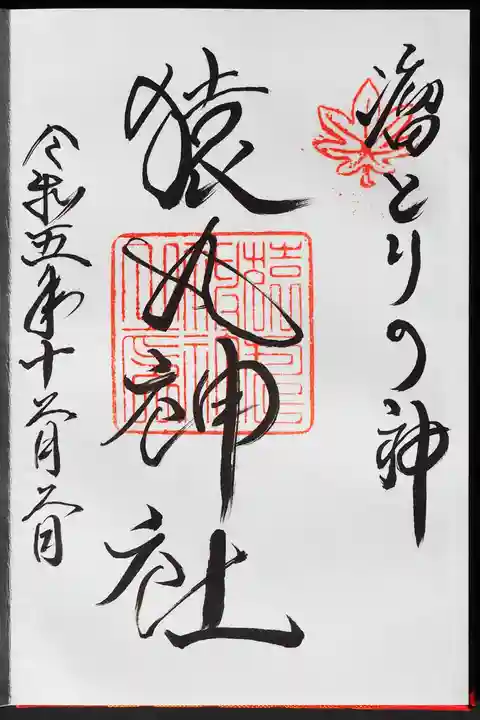 瘤とりの神
猿丸神社
令和五年十二月二日